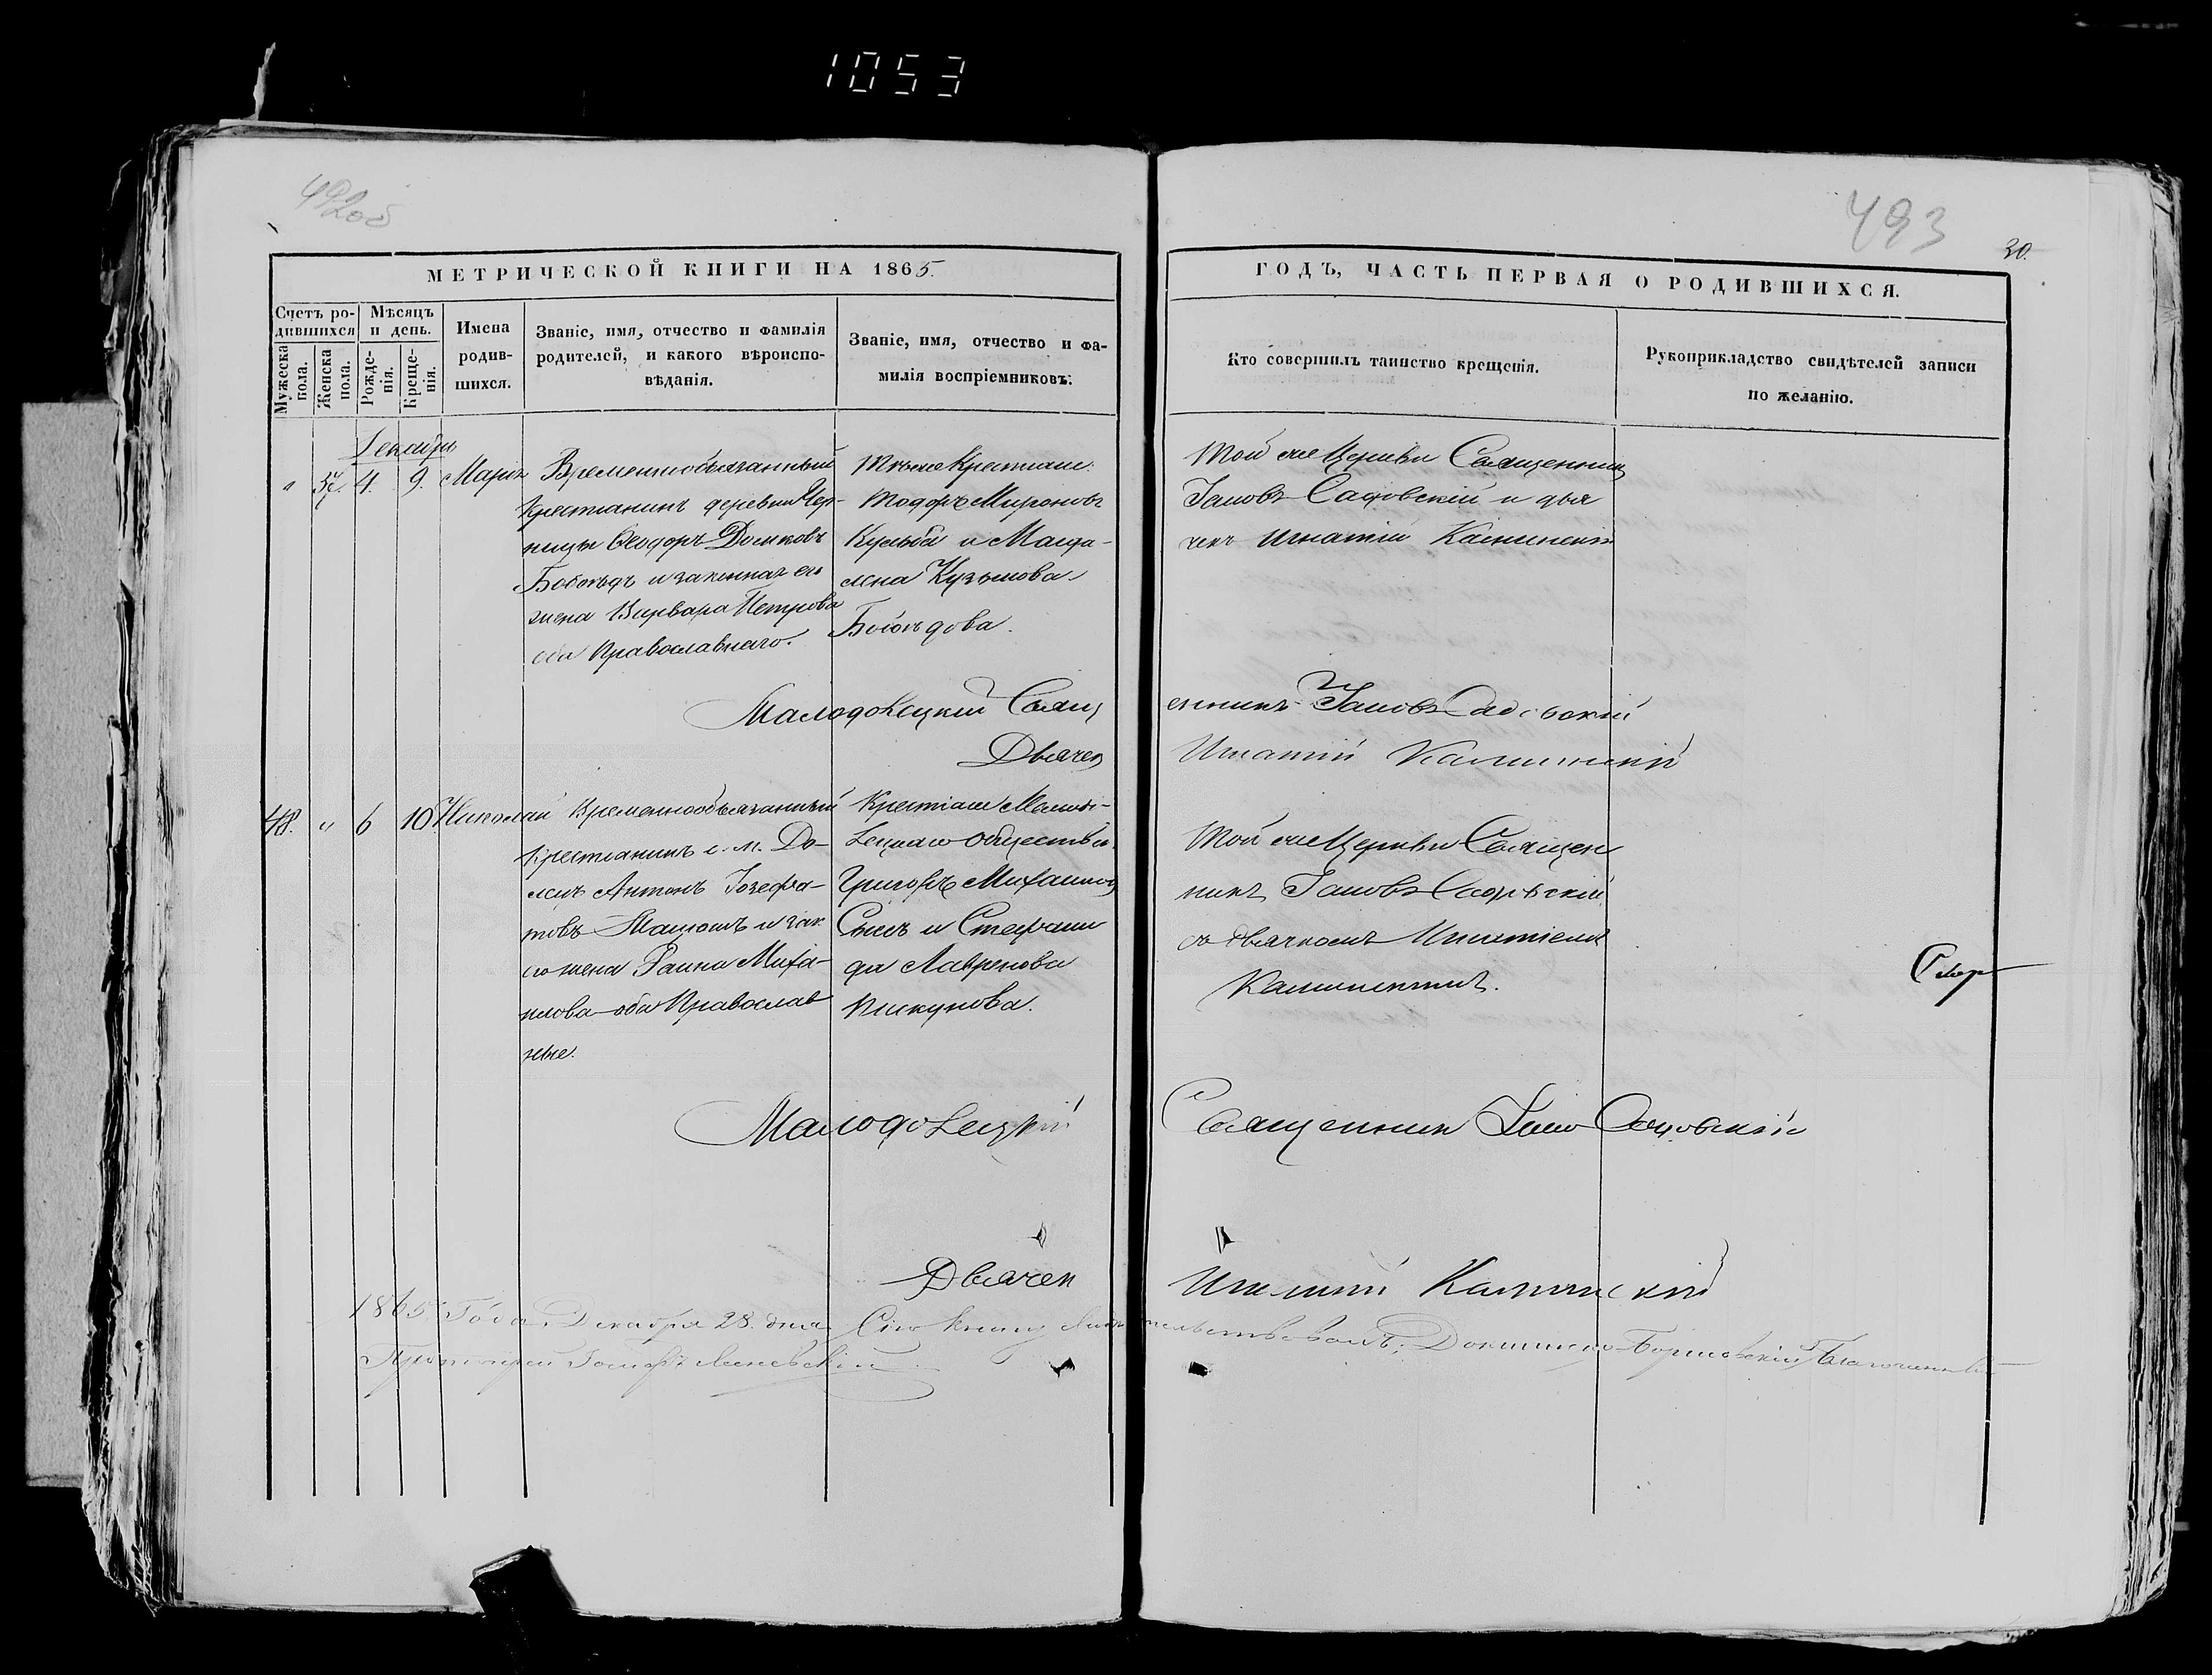 1053
492об
493
30.
МЕТРИЧЕСКОЙ КНИГИ НА 1865.
ГОДЪ, ЧАСТЬ ПЕРВАЯ О РОДИВШИХСЯ.
Счетъ ро-
дившихся
Мужеска
пола.
Женска
пола.
Мѣсяцъ
и день.
Рожде-
нія.
Креще-
нія.
Имена
родив-
шихся.
Званіе, имя, отчество и фамилія
родителей, и какого вѣроиспо-
вѣданія.
Званіе, имя, отчество и фа-
милія воспріемниковъ.
Кто совершилъ таинство крещенія.
Рукоприкладство свидѣтелей записи
по желанію.
Декабрь
" 4. 9. Марія
Временнообязанный
Крестіанинъ деревни Чер-
ницы Ѳеодоръ Домковъ
и законная его
жена Варвара Петрова
оба Православнаго.
Тѣже Крестіане
Тодоръ Мироновъ
Кульба и Магда-
лена Кузьмова
Той же Церкви Священникъ
Іаковъ Садовскій и дья
чекъ Игнатій Калинскій
Малодолецкій Священникъ Іаковъ Садовскій
Дьячекъ Игнатій Калинскій
48. " 6 10 Николай
Временнообязанный
Крестіанинъ с. м. До-
Антонъ Іозефа-
товъ и зак
его жена Раина Миха-
илова оба Православ
ные.
Крестіане Малодо-
лецкаго общества
Григоръ Михаиловъ
и Стефани
да Лавренова
Пискунова.
Той же Церкви Священ
никъ Іаковъ Садовскій
съ дьячкомъ Игнатіемъ
Калинскимъ.
Малодолецкій Священникъ Іаковъ Садовскій
Дьячекъ Игнатій Калинскій
1865 Года Декабря 28 дня Сію книгу свидѣтельствовалъ, Докшицко-Борисовскій Благочинный
Протоіерей